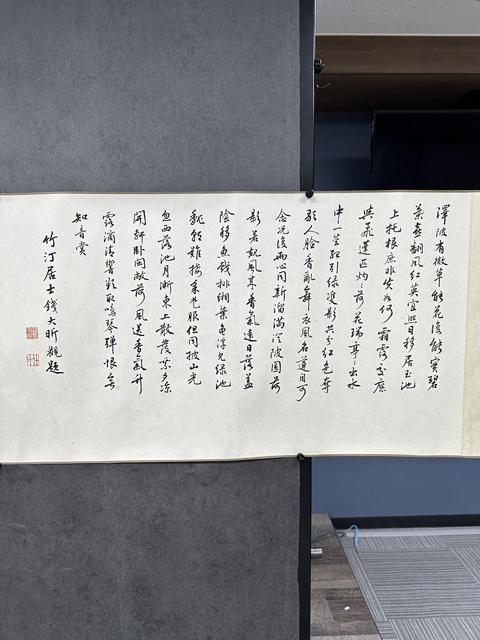 澤陂有微草能花復能實碧
葉喜翻風紅英宜照日移居玉池
上托根庶非失如何霜露交應
與飛蓬匹灼灼荷花瑞亭亭出水
中一莖孤引綠雙影共分紅色奪
歌人臉香亂舞衣風名蓮自可
念況復兩心同新溜滿澄陂圓荷
影若規風來香氣遠日落蓋
陰移魚戲排緗葉龜浮見綠池
魏朝難接采楚服但同披山光
忽西落池月漸東上散髮乘夕涼
開軒卧閑敞荷風送香氣竹
露滴清響欲取鳴琴彈恨無
知音賞
竹汀居士錢大昕觀題